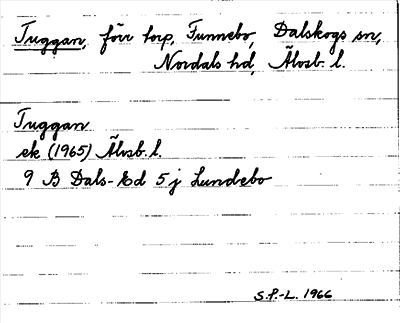 Tuggan, förr torp, Funnebo, Dalskogs sn,
Nordals hd, Älvsb. l.
Tuggan
ek (1965) Älvsb. l.
9 B Dals-Ed 5 j Lundebo
S.P.-L. 1966